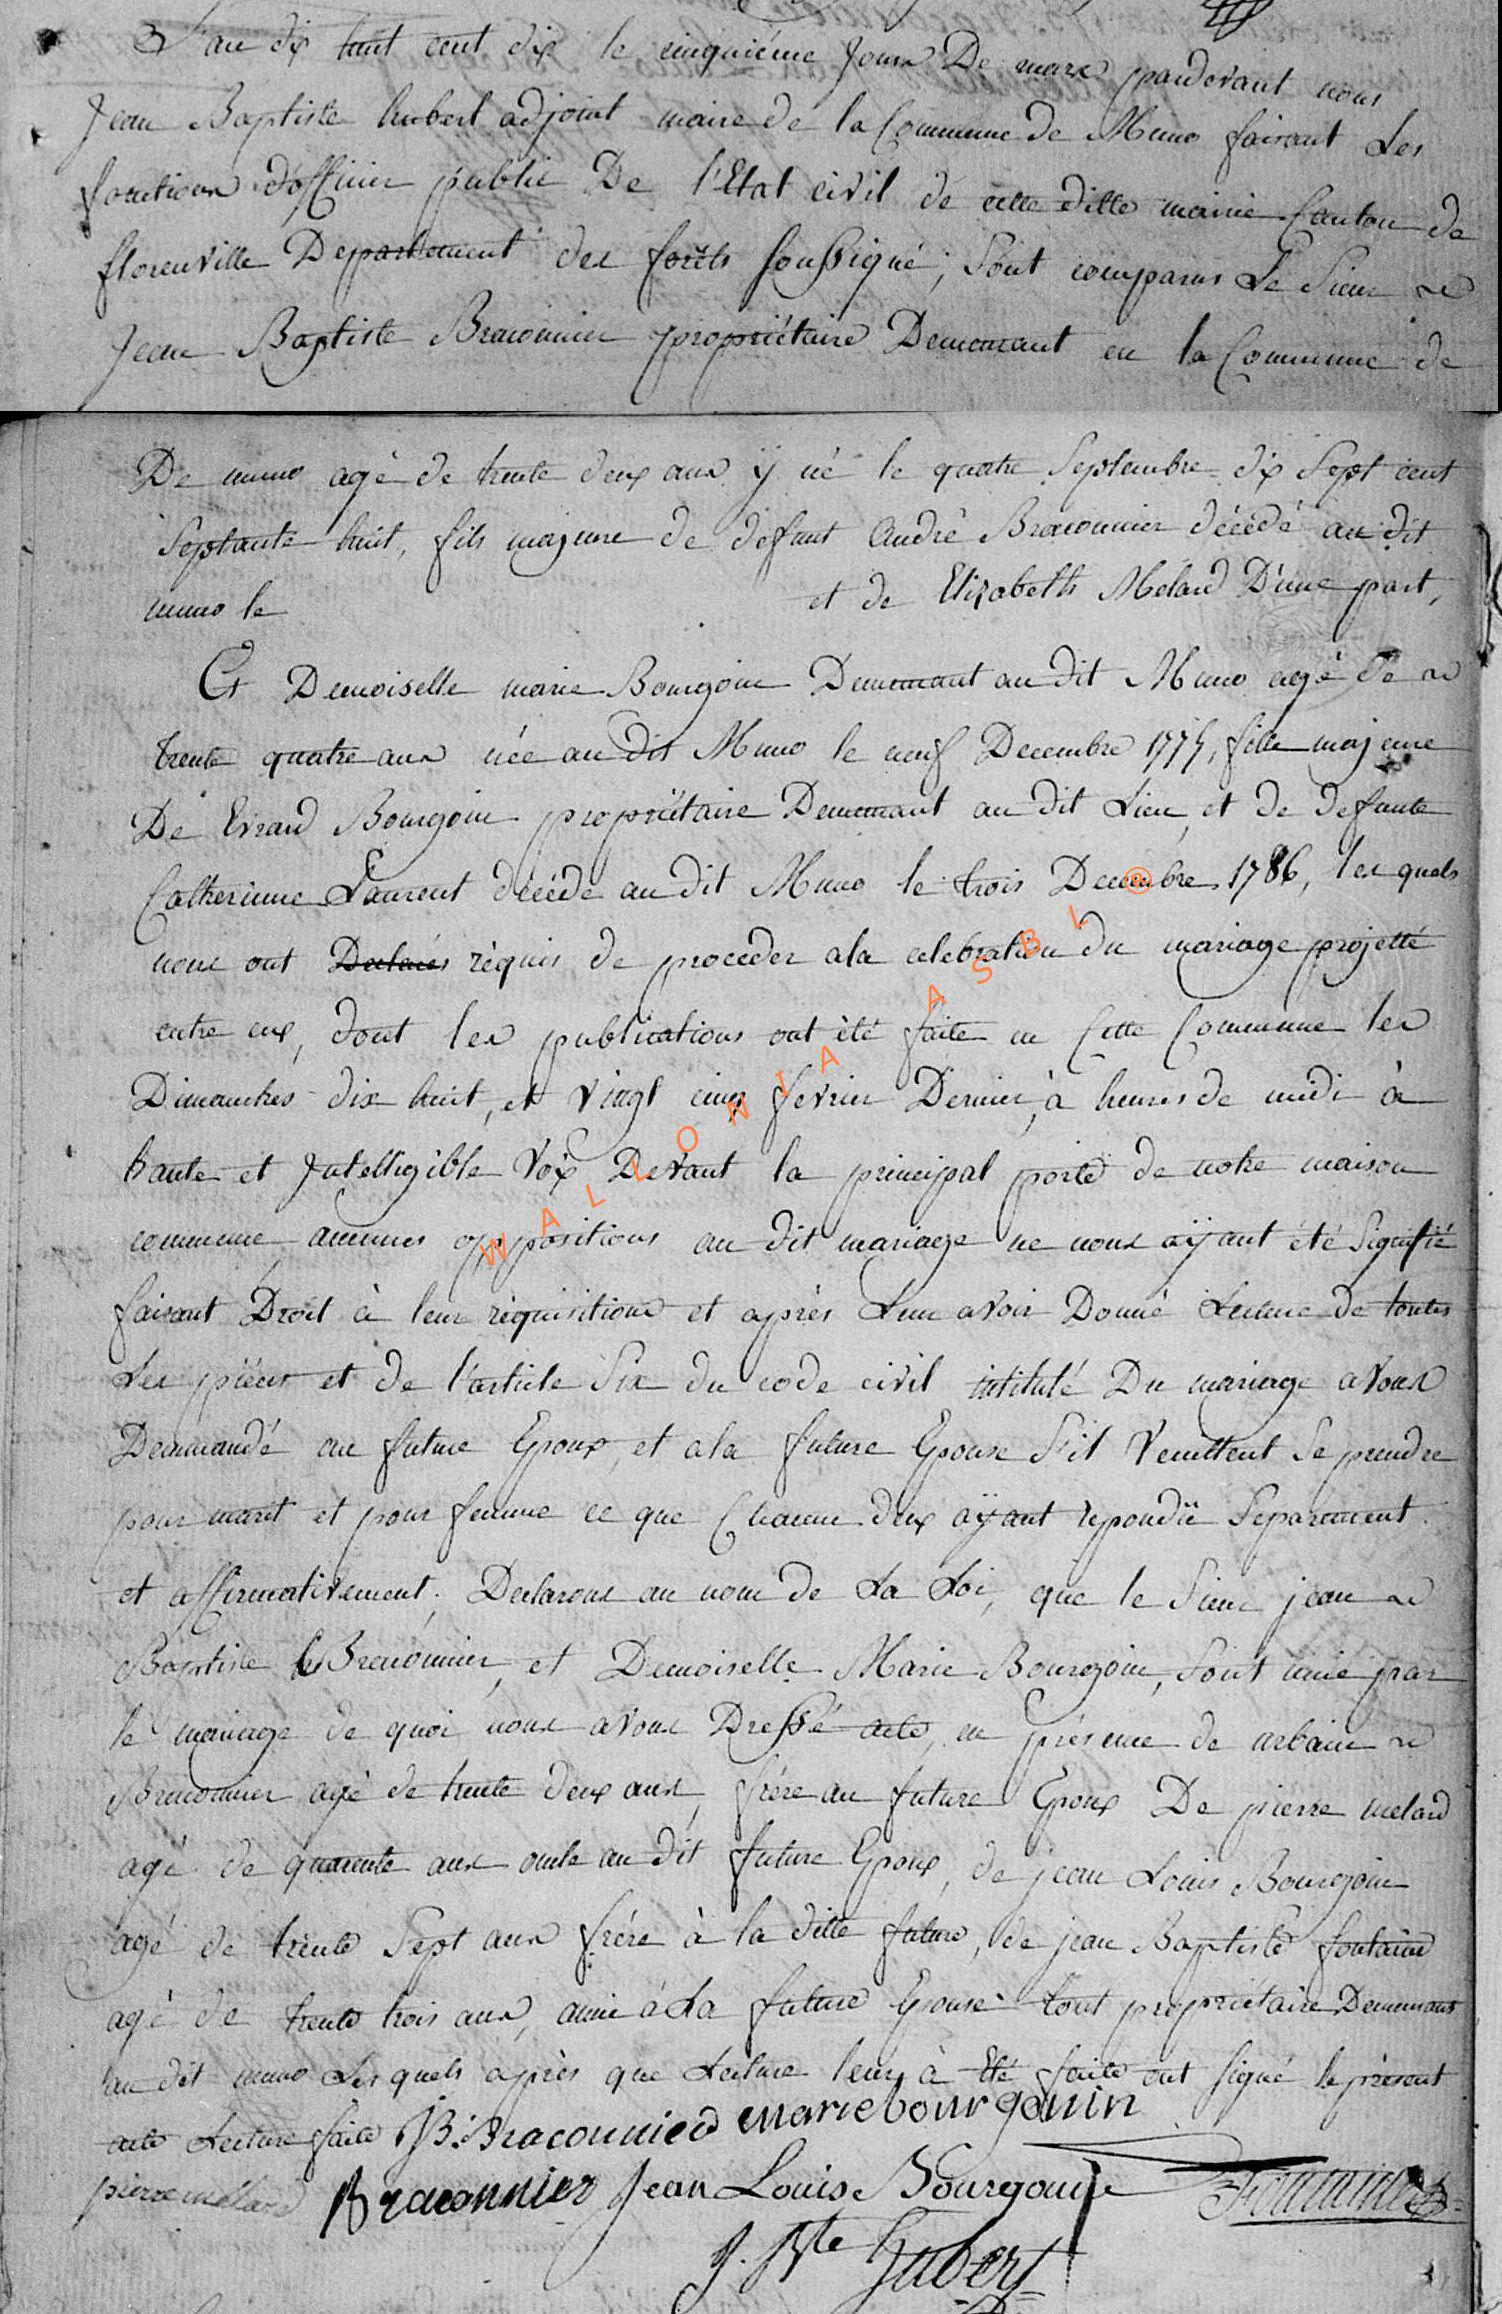 L'an dix huit cent dix le cinquiéme Jour De mars pardevant nous
Jean Baptiste hubert adjoint maire de la Commune de Muno faisant Les
fonctions d'officier public De l'Etat civil de cette ditte mairie Canton de
florenville Departement des forêts soussigné, Sont comparus Le Sieur
Jean Baptiste Braconnier propriétaire Demeurant en la Commune de
De muno agé de trente deux ans ÿ né le quatre Septembre dix Sept cent
Septante huit, fils majeure de defunt André Braconnier décédé au dit
muno le et de Elizabeth Melard D'une part,
Et Demoiselle marie Bourgoin Demeurant au dit Muno agé de
trente quatre ans née au dit Muno le neuf Decembre 1775, fille majeure
De Evrard Bourgoin propriétaire Demeurant au dit Lieu, et de defunte
Catherinne Laurent décédé au dit Muno le trois Decembre 1786, les quels
nous ont Declarés réquis de proceder a la celebration du mariage projetté
entre eux, dont les publications ont été faite en Cette Commune les
Dimanches dix huit, et vingt cinq fevrier Dernier, à heures de midi à
haute et Intelligible Voix Devant la principal porte de notre maison
commune aucunes oppositions au dit mariage ne nous aÿant été Signifié
faisant Droit à leur réquisitions et après Leur avoir Donné Lecture de toutes
Les piéces et de l'article Six du code civil intitulé Du mariage avons
Demmandé au future Epoux, et a la future Epouse S'il Veuillent Se prendre
pour marit et pour femme ce que Chacun deux aÿant repondü Separement
et affirmativement, Declarons au nom de La Loi, que le Sieur jean
Baptiste Braconnier, et Demoiselle Marie Bourgoin, Sont unie par
le mariage de quoi nous avons Dressé acte, en présence de urbain
Braconnier agé de trente deux ans, frére au future Epoux De pierre melard
agé de quarente ans oncle au dit future Epoux, de jean Louis Bourgoin
agé de trente Sept ans frére à la ditte future, de jean Baptiste fontaine
agé de trente trois ans, amie à La future Epouse tout propriétaire Demeurant
au dit muno Les quels après que Lecture leur à Eté faite ont signé le présent
acte Lecture faite JB: Braconnier marie bourgouin
pierre mélard Braconnier Jean Louis Bourgouin Fontaine
J. Bte Hubert
WALLONIA ASBL ®